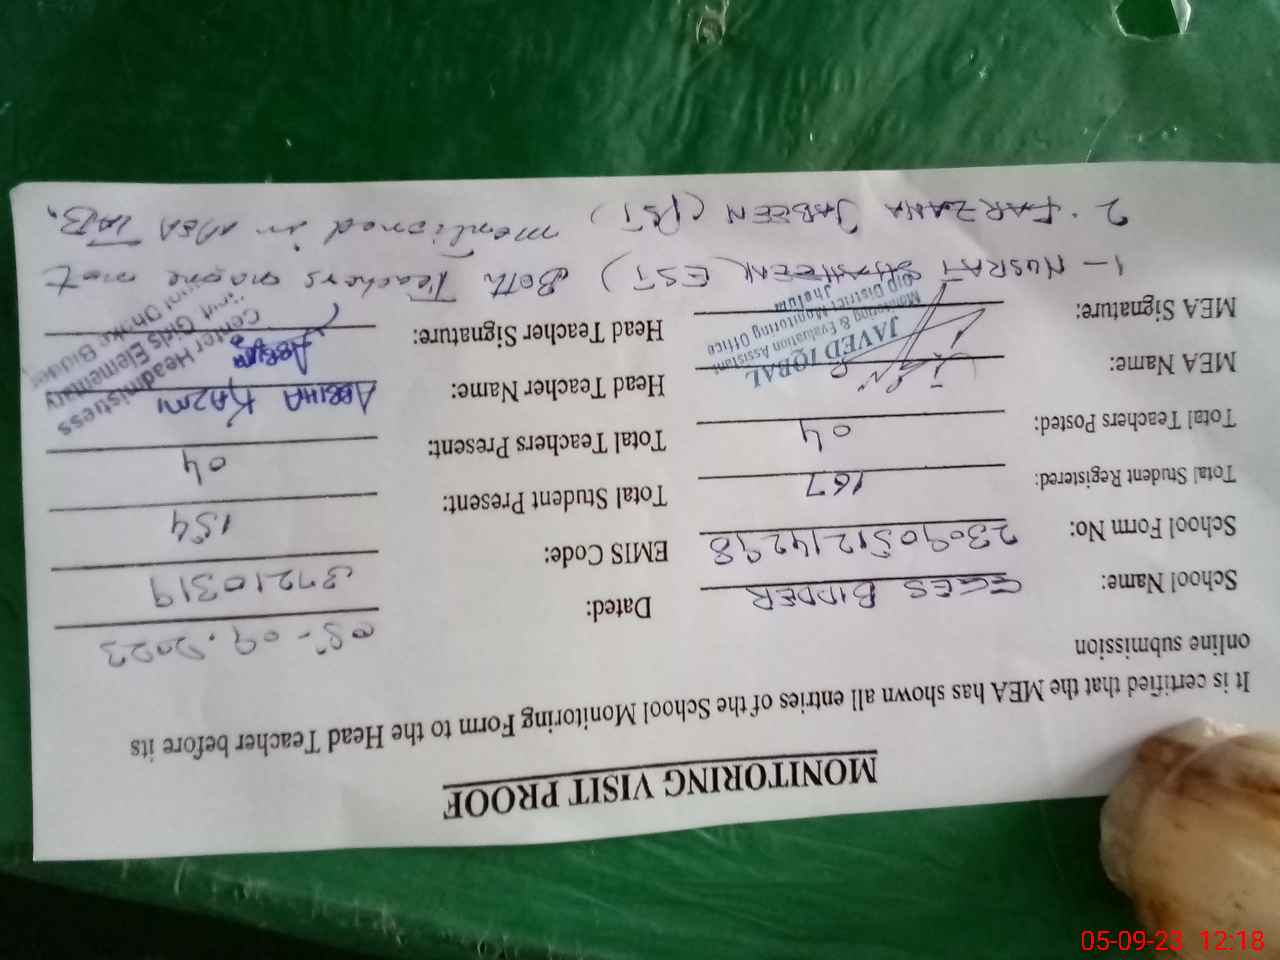 MONITORING VISIT PROOF
It is certified that the MEA has shown all entries of the School Monitoring Form to the Head Teacher before its
online submission
School Name: GGES BIDDER Dated: 05-09.2023
School Form No: 2309051214298 EMIS Code: 37210319
Total Student Registered: 167 Total Student Present: 154
Total Teachers Posted: 04 Total Teachers Present: 04
MEA Name: Head Teacher Name: ABBIHA KAZMI
MEA Signature: Head Teacher Signature:
JAVED IQBAL
Monitoring & Evaluation Assistant
O/o District Monitoring Office
Jhelum
Center Headmistress
Girls Elementary
1- NUSRAT SHAHEEN (EST) Both Teachers name not
2. FARZANA JABEEN (PST) mentioned in MEA TAB.
05-09-23 12:18